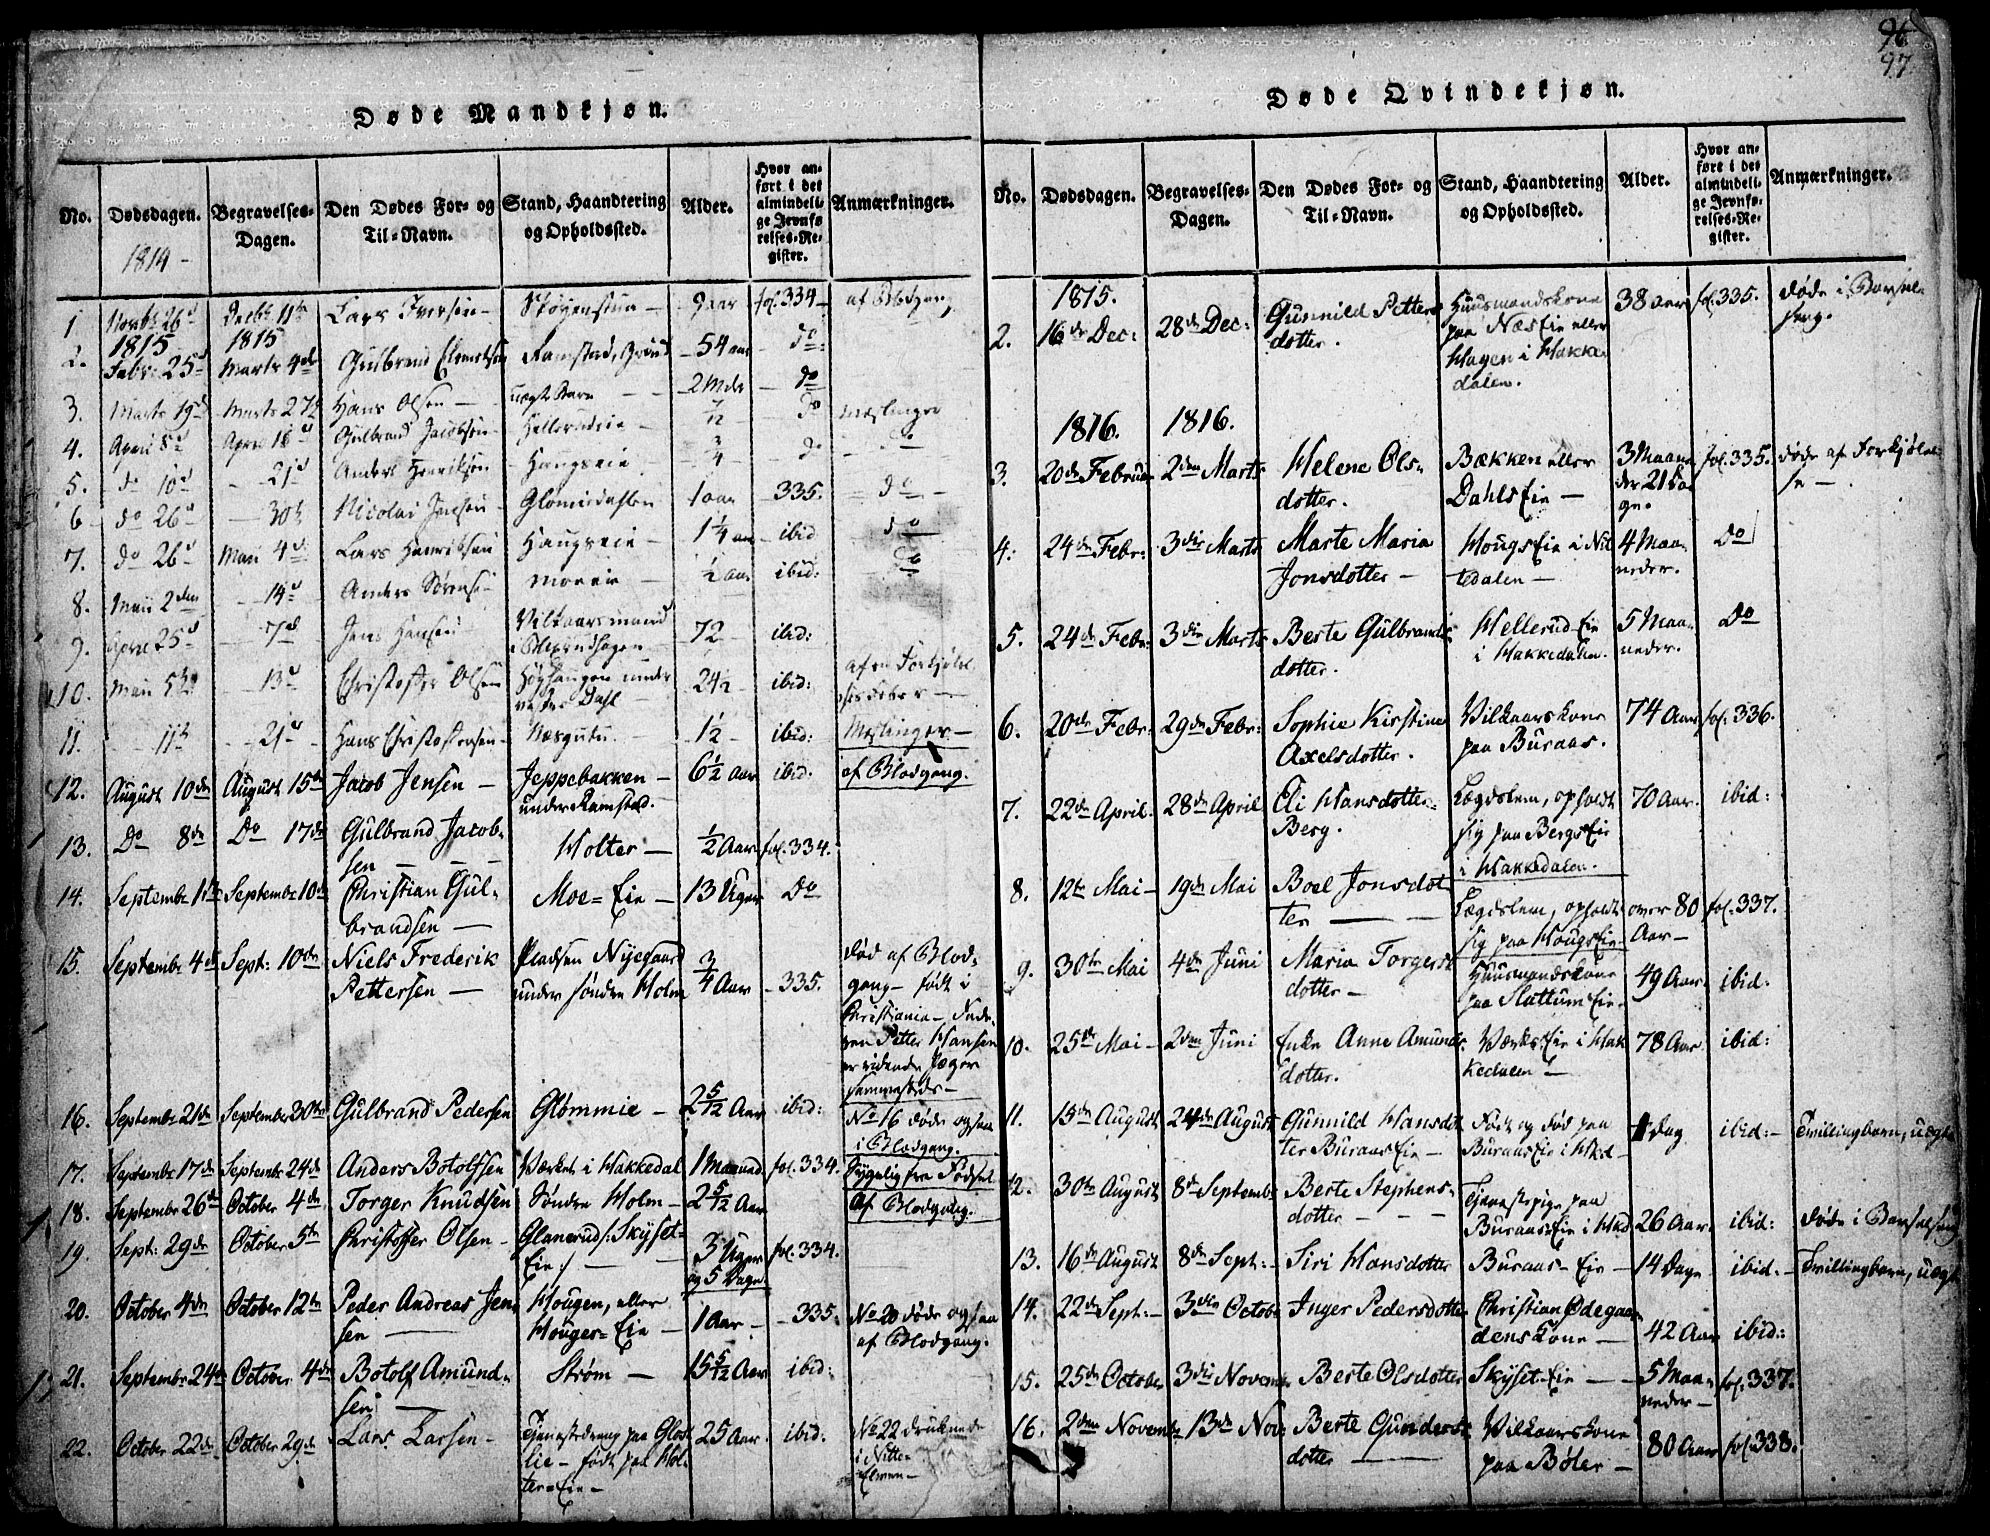 96
97
Døde Mandkjøn.
No.
Dødsdagen.
Begravelses-Dagen.
Den Dødes For- og Til-Navn.
Stand, Haandtering og Opholdssted.
Alder.
Hvor anført i det almindelige Jevnførelses-Register.
Anmærkninger.
1814 -
1 Novbr 26d Decbr 11te Lars Iversen - Skøyenstuen - 9 aar fol. 334 - af Blodgang
1815 1815
2. Febr: 25d Marts 4de Gulbrand Ramstad, - 54 aar - do:
3. Marts 19d Marts 27d Hans Olsen - uægte Barn - 2 Mdr - do
4. April 8d April 18d Gulbrand Jacobsen - Hellerudeie - 7/12 - do Meslinger
5. do 10d - 21d Anders Henriksen - Haugseie - 3/4 do - do -
6 - do 26d - 30te Nicolai Jensen - 1 aar - 335. - do -
7. do 26d Maii 4d Lars Henriksen Haugseie - 1 1/4 aar - ibid do
8. Maii 2den - 14d Anders Sørense- moeeie - 1/2 aar ibid: do
9. April 25d - 7d Jens Hansen Vilkaarsmand
72 ibid:
10. Maii 5te - 13d Christoffer Olsen under
vestre Dahl 24 1/2 - ibid: af en Forkjølel
ses feber -
11. - 11te - 21d - Hans Christoffersen - - 1 1/2 - ibid: Meslinger -
12. August 10de August 15de Jacob Jensen - Jeppebakken - 6 1/2 Aar ibid: af Blodgang.
under Ramstad.
13. Do 8de Do 17de Gulbrand Jacob-
sen - - - Holter - 1/2 Aar fol. 334.
14. Septembr 1ste Septembr 10de Christian Gul-
brandsen - Moe-Eie - 13 Uger Do
15. Septembr 4de Sept: 10de Niels Frederik
Pettersen - Pladsen Nyegaard
under søndre Holm 3/4 Aar - 335. død af Blod-
gang - født i
Christiania - Fade-
ren Petter Hansen
er ridende Jæger
sammesteds -
16. Septembr 21de Septembr 30te Gulbrand Pedersen Glømmie - 2 5/12 Aar ibid: No 16 døde ogsaa
i Blodgang.
17. Septembr 17de Septembr 24de Anders Botolfsen Værket i Hakkedal 1 Maaned fol. 334. Sygelig fra Fødsel
18. Septembr 26de October 4de Torger Knudsen Søndre Holm - 2 5/12 Aar Af Blodgang.
19. Sept: 29de October 5te Christoffer Olsen - Glanerud /: Skyset-
Eie :/ - 3 Uger
og 5 Dage fol. 334.
20. October 4de October 12te Peder Andreas Jen-
sen - Hougen, eller
Houger-Eie - 1 Aar - - 335. No 20 døde ogsaa
af Blodgang.
21. Septembr 24de October 4de Botolf Amund-
sen - Strøm - 15 5/12 Aar ibid:
22. October 22de October 29de Lars Larsen - Tjenestedreng paa Glas-
lie - født paa Hol-
ter-Eie - 25 Aar. ibid: No 22 druknede
i Nitte-
elven -
Døde Qvindekjøn.
No.
Dødsdagen.
Begravelses-Dagen.
Den Dødes For- og Til-Navn.
Stand, Haandtering og Opholdssted.
Alder.
Hvor anført i det almindelige Jevnførelses-Register.
Anmærkninger.
1815.
2. 16de Dec: 28de Dec: Gunnild Petters-
dotter. Huusmandskone
paa Næs Eie eller
Hagen i Hakke-
dalen. 38 aar fol. 335. døde i Barsel-
seng.
1816. 1816.
3. 20de Februar 2den Marts Helene Ols-
dotter. Bækken eller
Dahls Eie - 3 Maane-
der 21 Da-
ge. fol. 335. døde af Forkjølel-
se -
4. 24de Febr: 3die Marts Marte Maria
Jonsdotter - Hougs Eie i Nit-
tedalen - 4 Maa-
neder. Do
5. 24de Febr: 3die Marts Berte Gulbrands-
dotter. Hellerud-Eie
i Hakkedalen. 5 Maa-
neder. Do
6. 20de Febr: 29de Febr: Sophie Kirstine
Axelsdotter. Vilkaarskone
paa Buraas. 74 Aar fol. 336.
7. 22de April. 28de April Eli Hansdotter
Berg. Lægdslem, opholdt
sig paa Bergs Eie
i Hakkedalen. 70 Aar. ibid:
8. 12te Mai - 19de Mai Boel Jonsdot-
ter - - Lægdslem, opholdt
sig paa Hougs Eie - over 80
Aar - fol. 337.
9. 30te Mai 4de Juni Maria Torgers-
dotter - Huusmandskone
paa Slattum Eie. 49 Aar. ibid:
10. 25de Mai - 2den Juni Enke Anne Amunds-
dotter. Værks Eie i Hak-
kedalen - 78 Aar. ibid:
11. 15de August 24de August Gunnild Hansdot-
ter Buraas Eie - Født og død paa
Buraas Eie i Hkd - 1 Dag ibid: - Tvillingbarn, uægte
12. 30te August 8de Septembr Berte Stephens-
dotter - - - Tjenestepige paa
Buraas Eie i Hkd 26 Aar. ibid: døde i Barselseng
13. 16de August 8de Sept: - Siri Hansdotter Buraas - Eie - 14 Dage ibid: - Tvillingbarn, uægte
14. 22de Sept: - 3die Octobr Inger Pedersdotter Christian Ødegaar-
dens Kone - 42 Aar ibid:
15. 25de October 3die Novembr Berte Olsdotter Skyset-Eie - - 5 Maa-
neder - fol. 337.
16. 2den Novembr 13de Nov: Berte Gunders-
dotter - Vilkaarskone
paa Bøler - 80 Aar fol. 338.